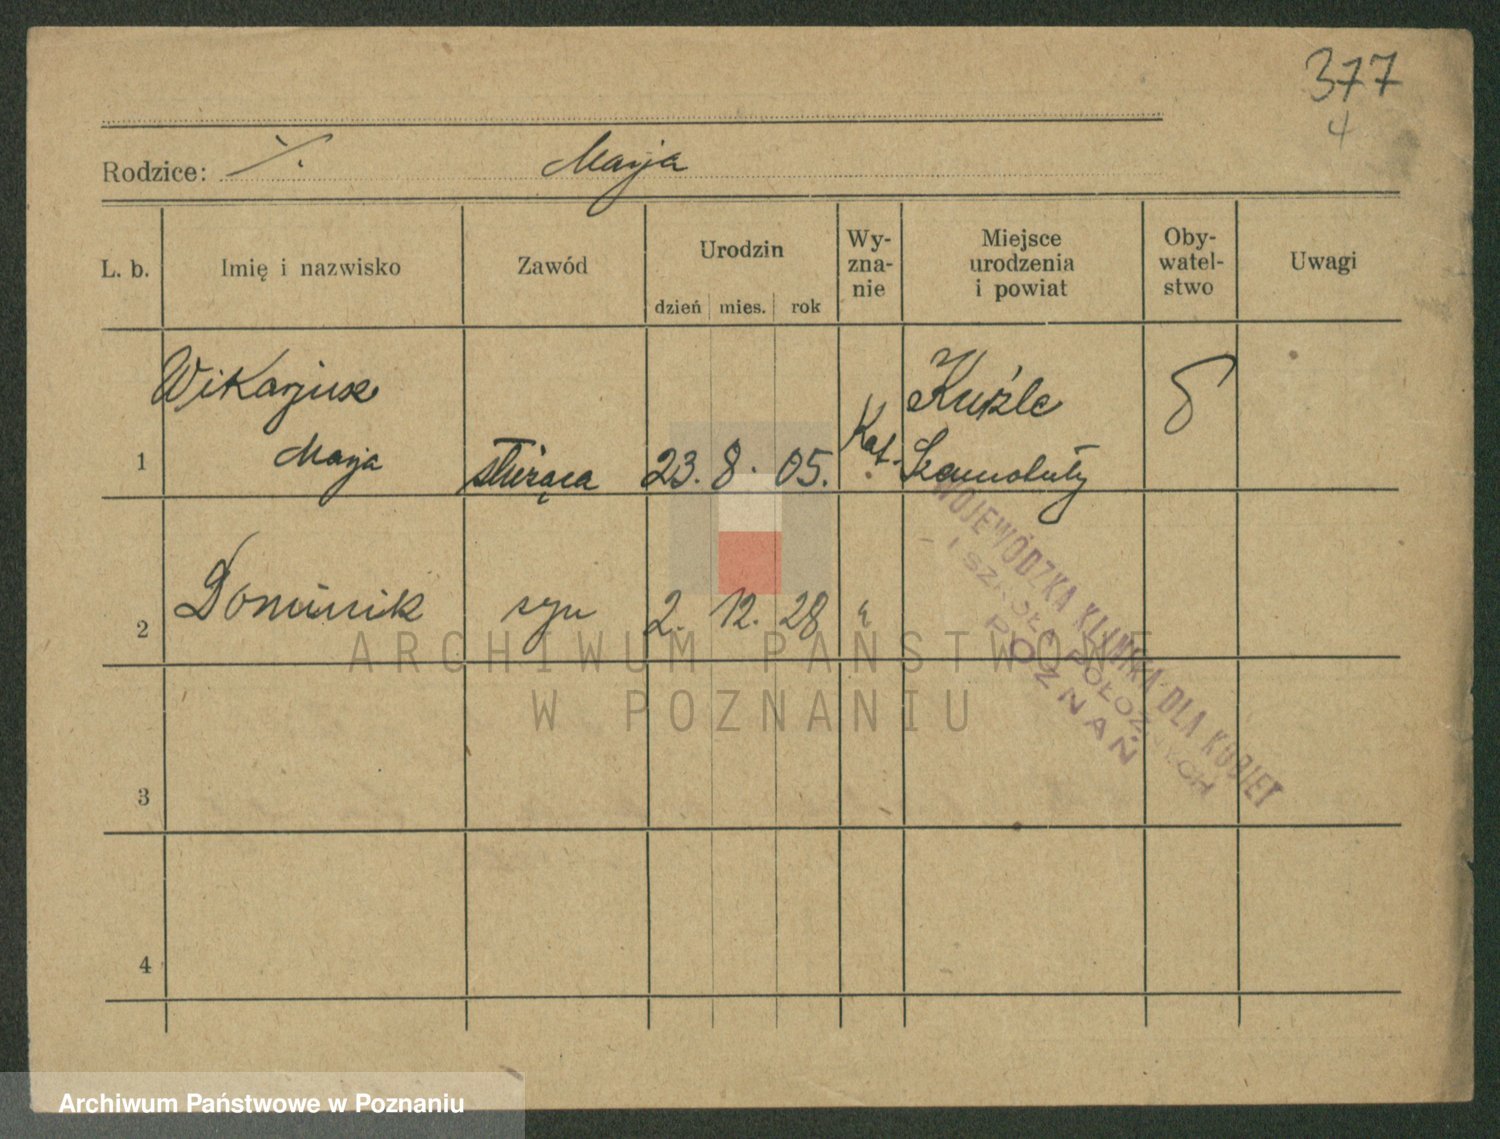 377
4
Rodzice: ·/. Marja
L. b. Imię i nazwisko Zawód Urodzin dzień mies. rok Wy-zna-nie Miejsce urodzenia i powiat Oby-watel-stwo Uwagi
Wikarjusz Kuźle
1 Marja służąca 23. 8. 05. Kat. Szamotuły
2 Dominik syn 2. 12. 28
3
4
WOJEWÓDZKA KLINIKA DLA KOBIET
- I SZKOŁA POŁOŻNYCH
POZNAŃ
ARCHIWUM PAŃSTWOWE
W POZNANIU
Archiwum Państwowe w Poznaniu